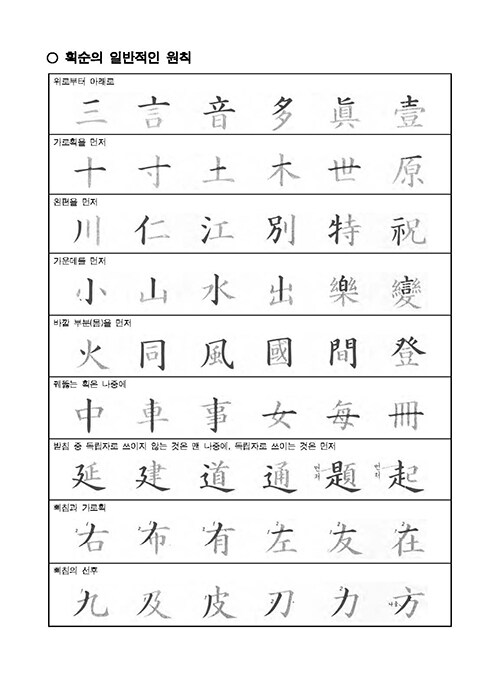 ○ 획순의 일반적인 원칙
위로부터 아래로
三 言 音 多 眞 壹
가로획을 먼저
十 寸 土 木 世 原
왼편을 먼저
川 仁 江 別 特 祝
가운데를 먼저
小 山 水 出 樂 變
바깥 부분(몸)을 먼저
火 同 風 國 間 登
꿰뚫는 획은 나중에
中 車 事 女 每 冊
받침 중 독립자로 쓰이지 않는 것은 맨 나중에, 독립자로 쓰이는 것은 먼저
延 建 道 通 먼저 題 먼저 起
삐침과 가로획
右 布 有 左 友 在
삐침의 선후
九 及 皮 刀 力 方